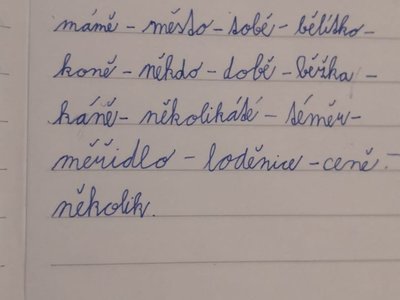 mámě - město - sobě - bělítko -
koně - někdo - době - běžka -
káně - několikáté - téměr -
měřidlo - loděnice - ceně -
několik.